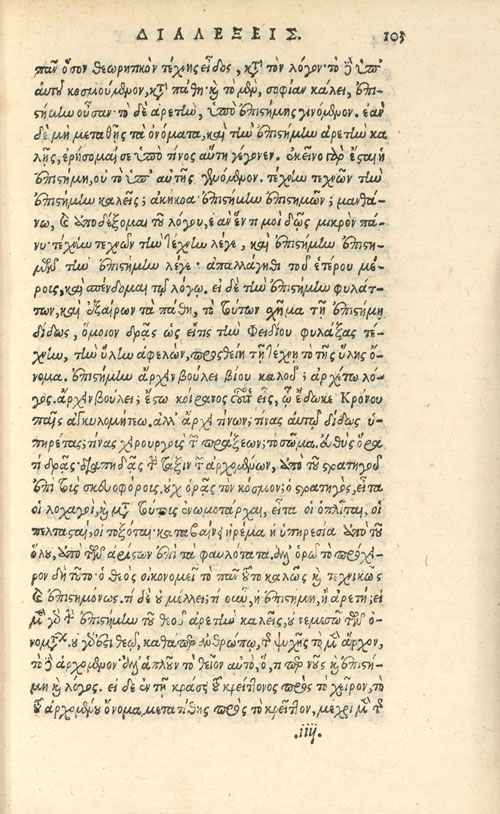 ΔΙΑΛΕΞΕΙΣ. 103
πᾶν ὅσον θεωρητικὸν τέχνης εἶδος, κατὰ τὸν λόγον· τὸ δὲ ὑπ'
αὐτοῦ κοσμούμενον, κατὰ πάθη· καὶ τὸ μὲν, σοφίαν καλεῖ, ἐπι-
στήμην οὖσαν· τὸ δὲ ἀρετὴν, ὑπὸ ἐπιστήμης γινόμενον. ἐὰν
δέ μοι μεταθῇς τὰ ὀνόματα, καὶ τὴν ἐπιστήμην ἀρετὴν κα
λῇς, ἐρήσομαί σε ὑπὸ τίνος αὕτη γέγονεν. ἐκεῖνο γὰρ ἔσται ἡ
ἐπιστήμη, οὐ τὸ ὑπ' αὐτῆς γινόμενον. τέχνην τεχνῶν τὴν
ἐπιστήμην καλεῖς; ἀκήκοα· ἐπιστήμην ἐπιστημῶν; μανθά-
νω, καὶ ὑποδέξομαι τοῦ λόγου, ἐὰν ἕν τί μοι δῷς μικρὸν πά-
νυ· τέχνην τεχνῶν τὴν τέχνην λέγε, καὶ ἐπιστήμην ἐπιστη-
μῶν τὴν ἐπιστήμην λέγε· ἀπαλλάγηθι τοῦ ἑτέρου μέ-
ρους, καὶ σπένδομαι τῷ λόγῳ. εἰ δὲ τὴν ἐπιστήμην φυλάτ-
των, καὶ ἐξαίρων τὰ πάθη, τὸ τούτων σχῆμα τῇ ἐπιστήμῃ
δίδως, ὅμοιον δρᾷς ὡς εἴ τις τὴν Φειδίου φυλάξας τέ-
χνην, τὴν ὕλην ἀφελὼν, προσθείη τῇ τέχνῃ τὸ τῆς ὕλης ὄ-
νομα. ἐπιστήμην ἄρχειν βούλει βίου καλοῦ; ἀρχέτω λό-
γος. ἄρχειν βούλει; ἔστω κοίρανος οὗτος εἷς, ᾧ ἔδωκε Κρόνου
παῖς ἀγκυλομήτεω. ἀλλ' ἄρχει τίνων; τίνας αὐτῷ δίδως ὑ-
πηρέτας; τίνας χειρουργοὺς τῶν πράξεων; τὸ σῶμα. εὐθὺς ὅρα
τί δρᾷς· διαπηδᾷς τὴν τάξιν τῶν ἀρχομένων, ὑπὸ τοῦ στρατηγοῦ
ἐπὶ τοὺς σκευοφόρους. οὐχ ὁρᾷς τὸν κόσμον; ὁ στρατηγὸς, εἶτα
οἱ λοχαγοὶ, καὶ μετὰ τούτους ἐνωμοτάρχαι, εἶτα οἱ ὁπλῖται, οἱ
πελτασταὶ, οἱ τοξόται· καταβαίνει ἠρέμα ἡ ὑπηρεσία ὑπὸ τοῦ
ὅλου, ὑπὸ τῶν ἀρίστων ἐπὶ τὰ φαυλότατα. ἀλλ' ὁρῶ τὸ πρόχει-
ρον δὴ τοῦτο· ὁ θεὸς οἰκονομεῖ τὸ πᾶν τοῦτο καλῶς καὶ τεχνικῶς
καὶ ἐπιστημόνως. τί δὲ οὐ μέλλει; τί οὖν, ἡ ἐπιστήμη, ἡ ἀρετή; εἰ
μὲν γὰρ τὴν ἐπιστήμην τοῦ θεοῦ ἀρετὴν καλεῖς, οὐ νεμεσῶ τῶν ὀ-
νομάτων. οὐ γὰρ ἔστι θεῷ, καθάπερ ἀνθρώπῳ, τῆς ψυχῆς τὸ μὲν ἄρχον,
τὸ δὲ ἀρχόμενον· ἀλλ' ἁπλοῦν τὸ θεῖον αὐτὸ, ὅ, τι περ νοῦς καὶ ἐπιστή-
μη καὶ λόγος. εἰ δὲ ἐν τῇ κράσει τοῦ κρείττονος πρὸς τὸ χεῖρον, τὸ
τοῦ ἀρχομένου ὄνομα μετατίθης πρὸς τὸ κρεῖττον, μέχρι μὲν τῆς
.iiij.